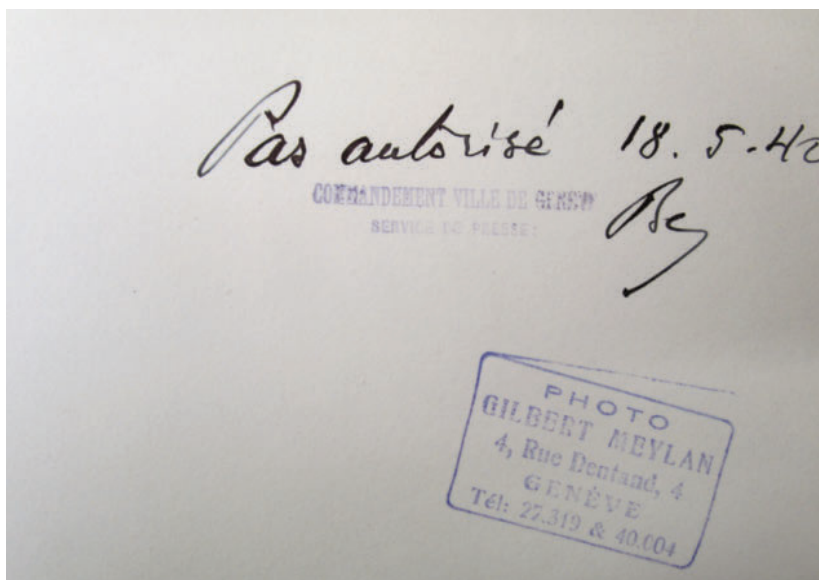 Pas autorisé 18.5.40
COMMANDEMENT VILLE DE GENEVE
SERVICE DE PRESSE:
PHOTO
GILBERT MEYLAN
4, Rue Dentand, 4
GENÈVE
Tél: 27.319 & 40.004